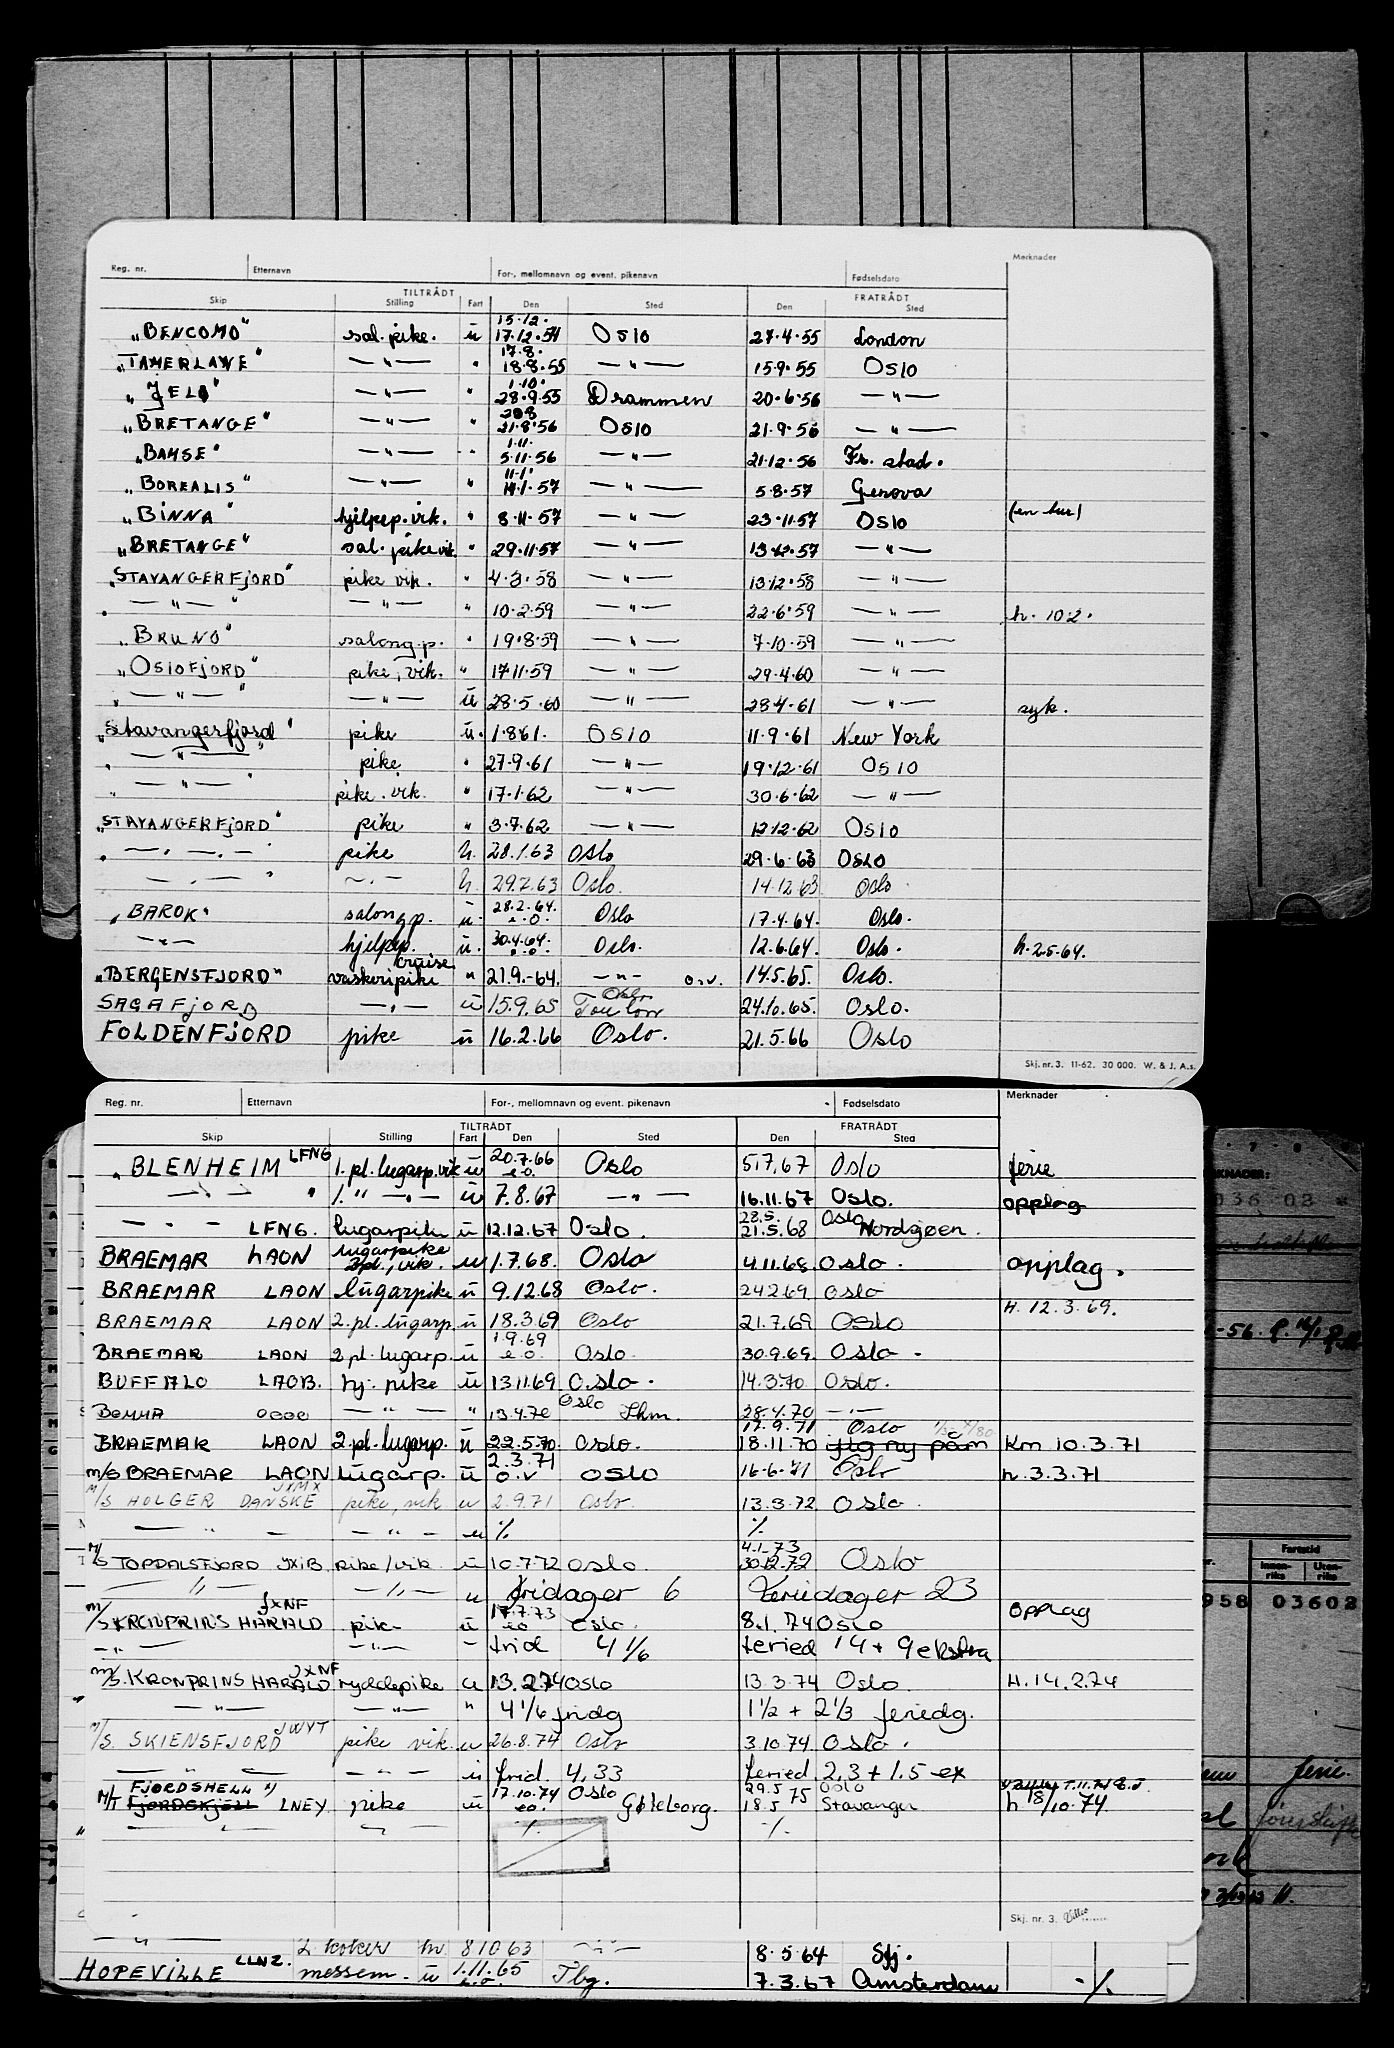 Reg. nr. Etternavn For-, mellomnavn og event. pikenavn Fødselsdato Merknader
TILTRÅDT FRATRÅDT
Skip Stilling Fart Den Sted Den Sted
15.12.
"BENCOMO" sal. pike. u 17.12.54 Oslo 27.4.55 London
17.8.
"TAMERLANE" —"— " 18.8.55 —"— 15.9.55 Oslo
1.10.
"JELØ" —"— " 28.9.55 Drammen 20.6.56 —"—
"BRETANGE" —"— " 21.8.56 Oslo 21.9.56 —"—
1.11.
"BAMSE" —"— " 5.11.56 —"— 21.12.56 Fr. stad.
11.1.
"BOREALIS" —"— " 14.1.57 —"— 5.8.57 Genova
"BINNA" hjelpep. vik. " 8.11.57 —"— 23.11.57 Oslo (en tur)
"BRETANGE" sal. pike vik. " 29.11.57 —"— 13.12.57 —"—
"STAVANGERFJORD" pike vik. " 4.3.58 —"— 13.12.58 —"—
—"— —"— " 10.2.59 —"— 22.6.59 —"— h. 10.2.
"BRUNO" salong.p. " 19.8.59 —"— 7.10.59 —"—
"OSLOFJORD" pike, vik. " 17.11.59 —"— 29.4.60 —"—
—"— —"— u 28.5.60 —"— 28.4.61 —"— syk.
"Stavangerfjord" pike u. 1.8.61. Oslo 11.9.61 New York
—"— pike " 27.9.61 —"— 19.12.61 Oslo
—"— pike. vik. " 17.1.62 —"— 30.6.62 —"—
"STAVANGERFJORD" pike " 3.7.62 —"— 12.12.62 Oslo
—"— pike u. 28.1.63 Oslo 29.6.63 Oslo
—"— —"— u. 29.7.63 Oslo. 14.12.63 Oslo
28.2.64.
"BAROK" salong p. u. e.o. Oslo 17.4.64. Oslo.
30.4.64.
—"— hjelpep. u. e.o. Oslo. 12.6.64. Oslo. h. 2.5.64.
cruise
"BERGENSFJORD" vaskeripike " 21.9.-64. —"— o.v. 14.5.65. Oslo.
Oslo
SAGAFJORD —"— u 15.9.65 Toulon 24.10.65. Oslo.
FOLDENFJORD pike u 16.2.66 Oslo. 21.5.66 Oslo
Skj. nr. 3. 11-62. 30 000. W. & J. A.s.
Reg. nr. Etternavn For-, mellomnavn og event. pikenavn Fødselsdato Merknader
TILTRÅDT FRATRÅDT
Skip Stilling Fart Den Sted Den Sted
LFNG 20.7.66
"BLENHEIM 1. pl. lugarp. vik u e.o. Oslo 5.7.67 Oslo ferie
—"— " 1. " —"— u 7.8.67 —"— 16.11.67 Oslo. opplag
28.5. Oslo
—"— LFNG. lugarpike u 12.12.67 Oslo. 21.5.68 Nordsjøen.
lugarpike
BRAEMAR LAON 2pl., vik. u 1.7.68. Oslo 4.11.68. Oslo. opplag.
BRAEMAR LAON lugarpike u 9.12.68 Oslo. 24.2.69. Oslo
H. 12.3.69.
BRAEMAR LAON 2. pl. lugarp. u 18.3.69 Oslo 21.7.69 Oslo
1.9.69
BRAEMAR LAON 2 pl. lugarp. u e.o. Oslo. 30.9.69. Oslo.
BUFFALO LAOB. hj. pike u 13.11.69 Oslo. 14.3.70 Oslo.
Oslo
BOMMA —"— " 13.4.70 Shm. 28.4.70 —"—
17.9.71 Oslo
BRAEMAR LAON 2. pl. lugarp. u 22.5.70. Oslo. 18.11.70 Km 10.3.71
2.3.71
M/S BRAEMAR LAON lugarp. u o.v Oslo 16.6.71 Oslo h. 3.3.71
JXMX
M/S HOLGER DANSKE pike, vik u 2.9.71 Oslo 13.3.72 Oslo
—"— —"— u % %
4.1.73
M/S TOPDALSFJORD JXIB pike/vik u 10.7.72 Oslo. 30.12.72 Oslo
—"— —"— u fridager 6 Feriedager 23
JXNF 17.7.73 opplag
M/S KRONPRINS HARALD pike u eo Oslo. 8.1.74 Oslo
—"— —"— — frid 4 1/6 feried 14 + 9 ekstra
JXNF
M/S. KRONPRINS HARALD ryddepike u 13.2.74 Oslo 13.3.74 Oslo. H. 14.2.74
—"— —"— " 4 1/6 fridg 1 1/2 + 2 1/3 feriedg.
JWYT
M/S. SKIENSFJORD pike vik. u 26.8.74 Oslo 3.10.74 Oslo.
—"— —"— u frid. 4,33 feried 2,3 + 1.5 ex
FJORDSHELL 17.10.74 Oslo 29.5 75 Oslo
M/T FJORDSKJELL LNEY pike u eo. Göteborg. 18.5 Stavanger h 18/10.74.
" —"— —"— % %
Skj. nr. 3.
—"— 2. koker 8 10 63 —"— 8.5.64 Sfj.
LLNZ. 1.11.65
HOPEVILLE messem. u e.o. Tbg. 7.3.67 Amsterdam -/.
7 8
MERKNADER:
036 02
Fartstid
Innen-riks Uten-riks
958 03602
ferie.